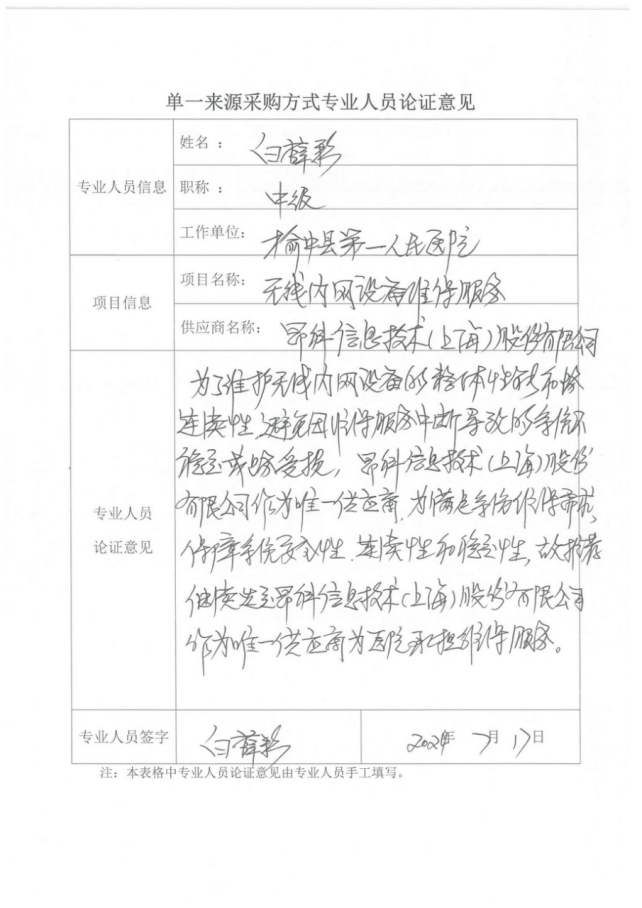 单一来源采购方式专业人员论证意见
专业人员信息
姓名：白薛彩
职称：中级
工作单位：榆中县第一人民医院
项目信息
项目名称：无线内网设备维保服务
供应商名称：昂科信息技术(上海)股份有限公司
专业人员
论证意见
为了维护无线内网设备的整体性能和
连续性,避免因维保服务中断导致的系统不
稳定或受损，昂科信息技术(上海)股份
有限公司作为唯一供应商,为满足系统维保需求,
保障系统安全性、连续性和稳定性,故推荐
继续选定昂科信息技术(上海)股份有限公司
作为唯一供应商为医院承担维保服务。
专业人员签字
白薛彩
2024年7月17日
注：本表格中专业人员论证意见由专业人员手工填写。